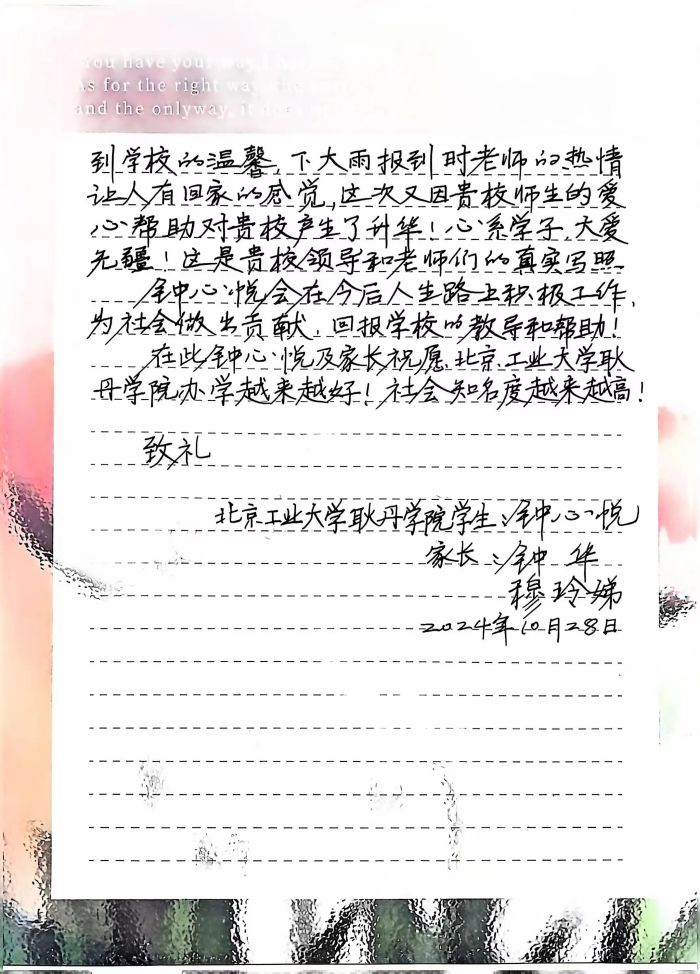 You have your way. I have
As for the right way, the
and the onlyway, it does
到学校的温馨，下大雨报到时老师的热情
让人有回家的感觉，这次又因贵校师生的爱
心帮助对贵校产生了升华！心系学子，大爱
无疆！这是贵校领导和老师们的真实写照
钟心悦会在今后人生路上积极工作，
为社会做出贡献，回报学校的教导和帮助！
在此钟心悦及家长祝愿北京工业大学耿
丹学院办学越来越好！社会知名度越来越高！
致礼
北京工业大学耿丹学院学生：钟心悦
家长：钟华
穆玲娣
2024年10月28日